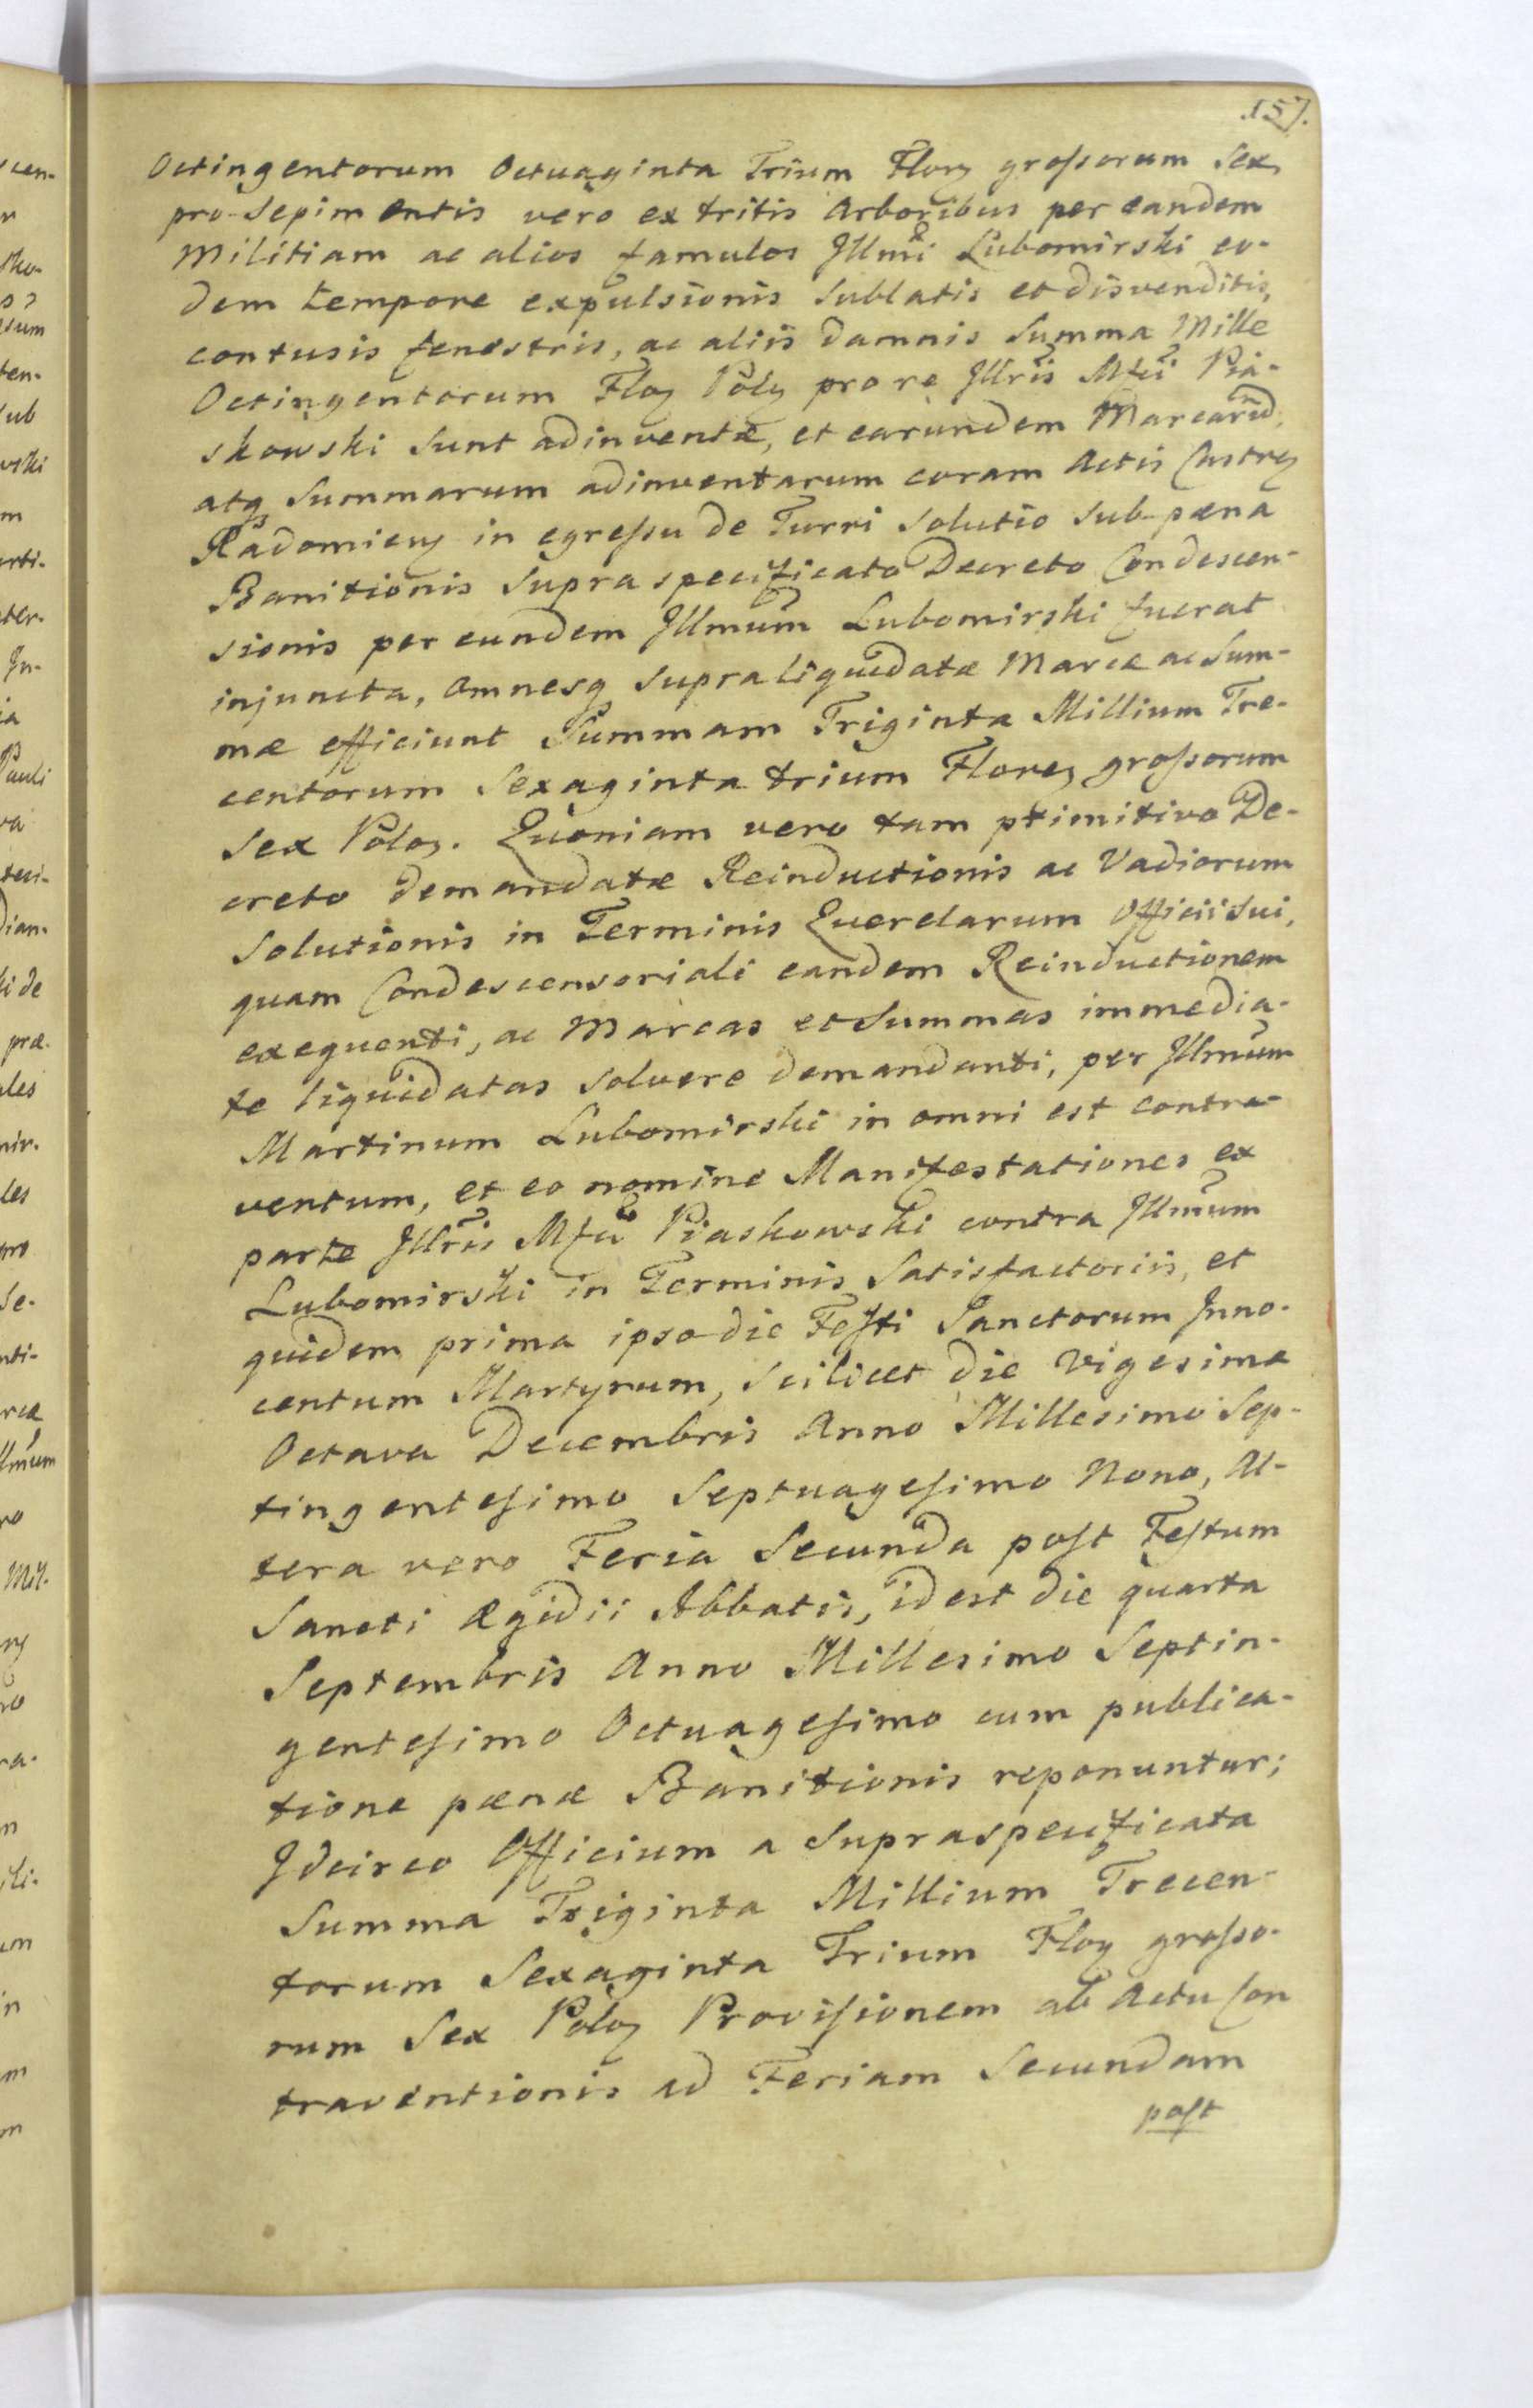 157.
Octingentorum Octuaginta Trium Florꝝ grossorum Sex,
pro Sepimentis vero ex tritis Arboribus per eandem
Militiam ac alios famulos Jllmi Lubomirski eo-
dem tempore expulsionis sublatis et disvenditis,
contusis fenestris, ac aliis damnis Summa Mille
Octingentorum Floꝝ Polꝝ pro re Jllris Mtci Pia-
skowski sunt adinventæ, et earundem Marcarũ
atq Summarum adinventarum coram Actis Castreꝝ
Radomieꝝ in egressu de Turri Solutio sub pæna
Banitionis supra specificato Decreto Condescen-
sionis per eundem Jllmum Lubomirski fuerat
injuncta, Omnesq supra liquidatæ Marcæ ac Sum-
mæ efficiunt Summam Triginta Millium Tre-
centorum Sexaginta trium Floreꝝ grossorum
Sex Poloꝝ. Quoniam vero tam primitivo De-
creto demandatæ Reinductionis ac Vadiorum
Solutionis in Terminis Querelarum Officii sui,
quam Condescensoriali eandem Reinductionem
exequenti, ac Marcas et Summas immedia-
te liquidatas solvere demandanti, per Jllmum
Martinum Lubomirski in omni est contra-
ventum, et eo nomine Manifestationes ex
parte Jllris Mtci Piaskowski contra Jllmum
Lubomirski in Terminis Satisfactoriis, et
quidem prima ipso die Festi Sanctorum Jnno-
centum Martyrum, scilicet die Vigesima
Octava Decembris Anno Millesimo Sep-
tingentesimo Septuagesimo Nono, Al-
tera vero Feria Secunda post Festum
Sancti Ægidii Abbatis, id est die quarta
Septembris Anno Millesimo Septin-
gentesimo Octuagesimo cum publica-
tione pænæ Banitionis reponuntur;
Jdcirco Officium a Supraspecificata
Summa Triginta Millium Trecen-
torum Sexaginta Trium Floꝝ grosso-
rum Sex Poloꝝ Provisionem ab Actu Con
traventionis ad Feriam Secundam
post